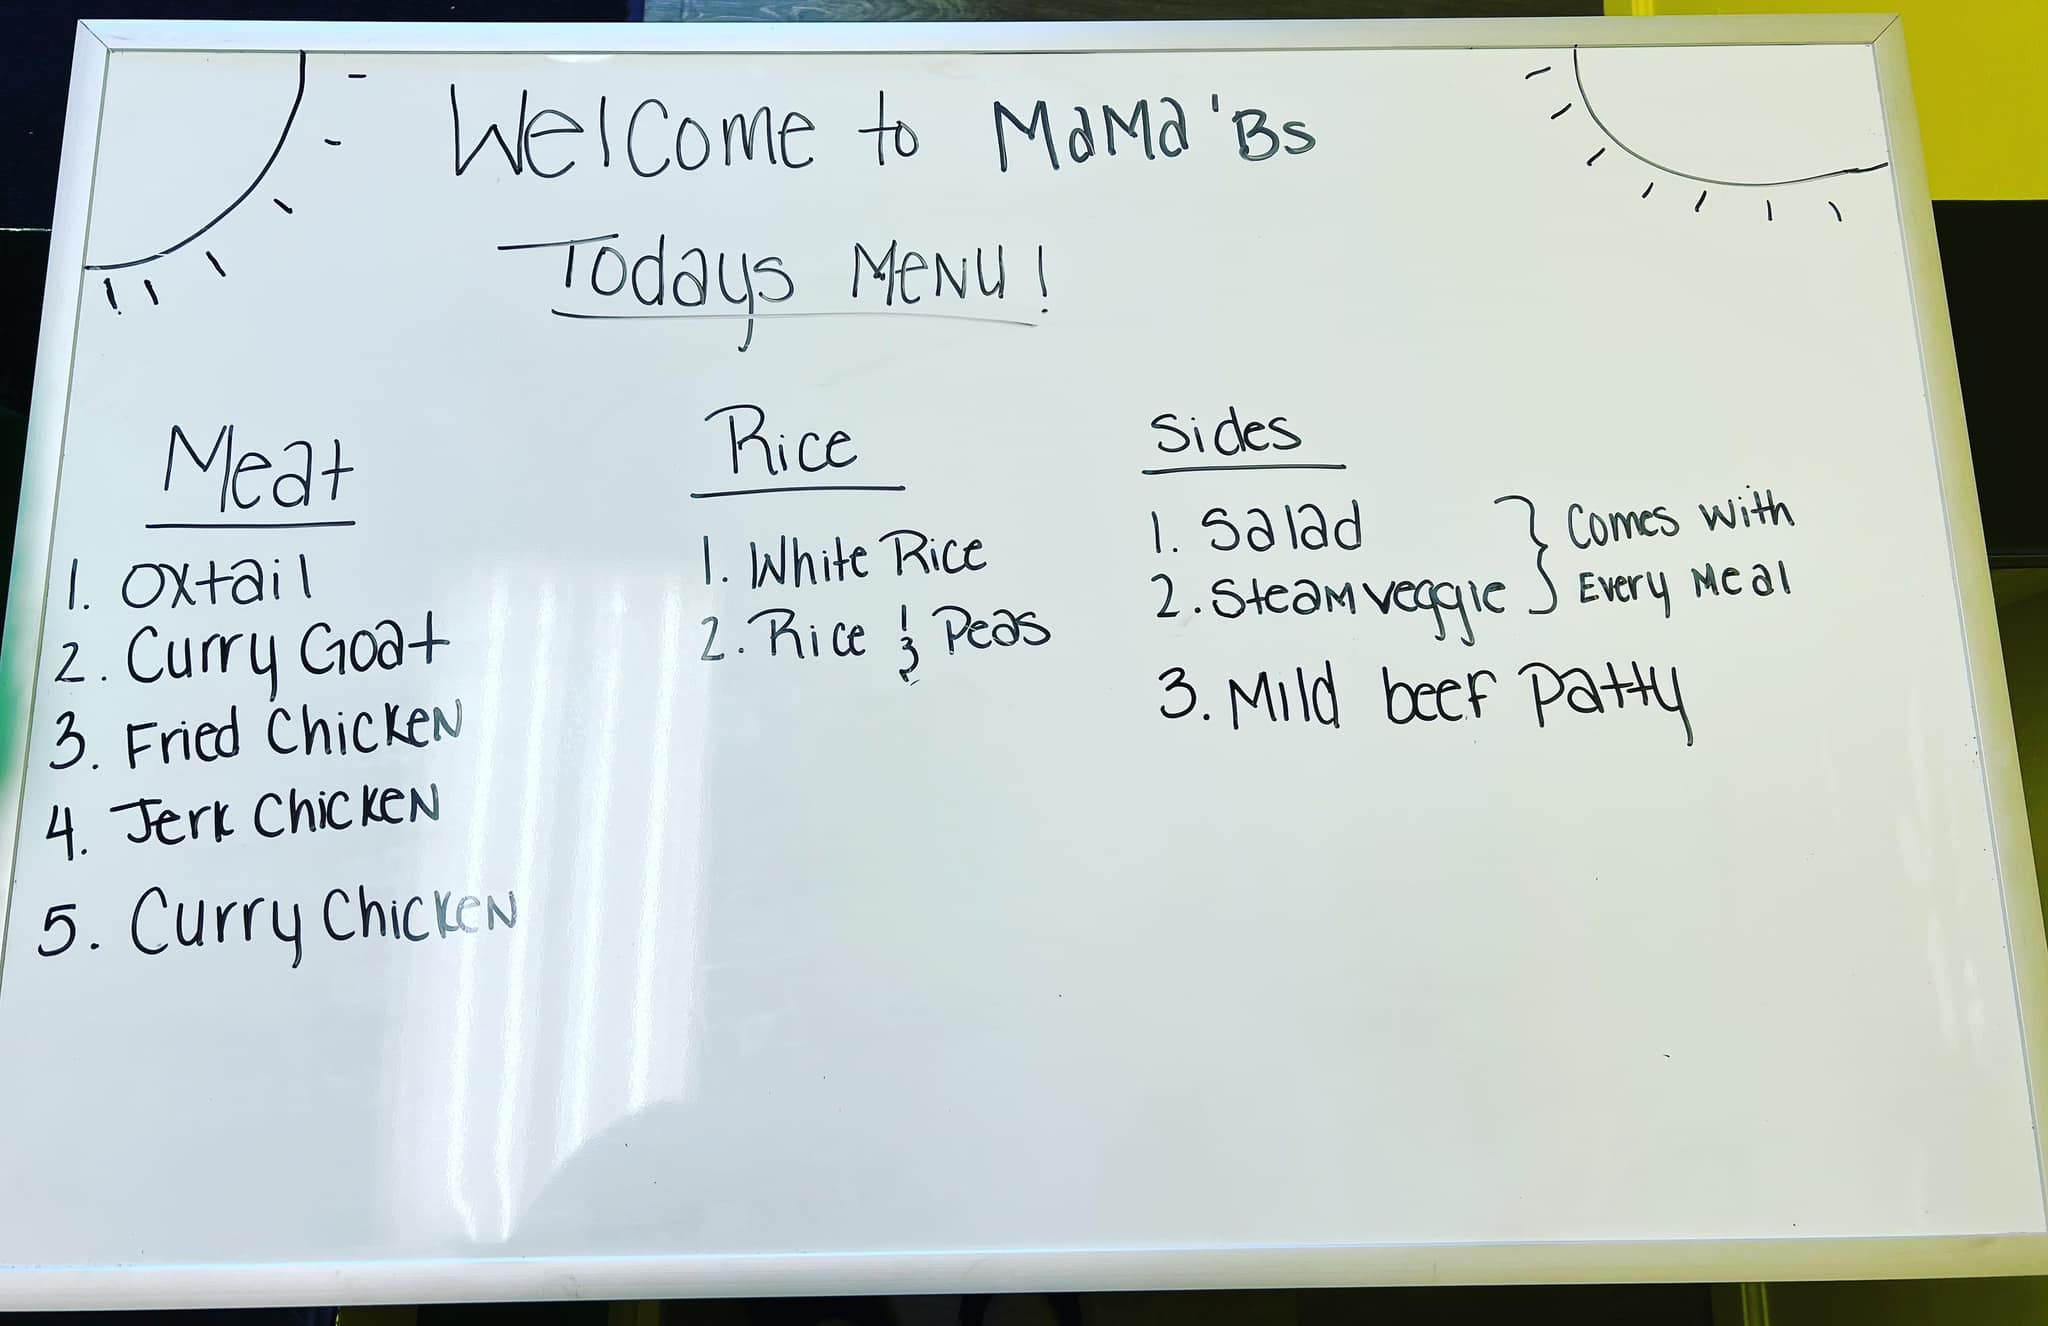 Welcome to MaMa 'Bs
Todays Menu!
Meat
1. Oxtail
2. Curry Goat
3. Fried Chicken
4. Jerk Chicken
5. Curry Chicken
Rice
1. White Rice
2. Rice & Peas
Sides
1. Salad
2. Steam veggie
} Comes with
Every Meal
3. Mild beef Patty